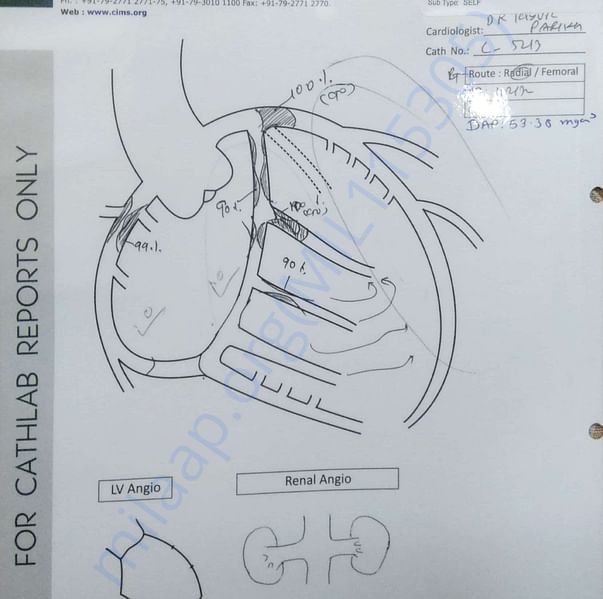 Ph. : +91-79-2771 2771-75, +91-79-3010 1100 Fax: +91-79-2771 2770.
Web : www.cims.org
Sub Type: SELF
Cardiologist: DR KEYUR
PARIKH
Cath No.: C- 5213
Rt Route : Radial / Femoral
DAP: 53.38
FOR CATHLAB REPORTS ONLY
100%
(CTO)
90%
100%
(CTO)
99%
90%
LV Angio
Renal Angio
milaap.org(MIL115305)